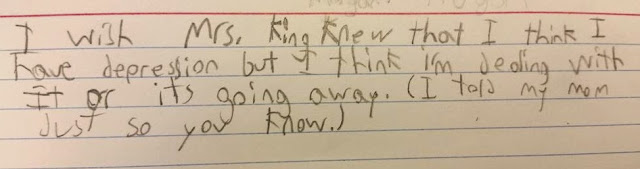 I wish Mrs. King knew that I think I
have depression but I think i'm dealing with
It or it's going away. (I told my mom
Just so you know.)